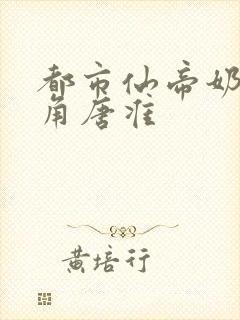 都市仙帝奶
角唐准
黄培行